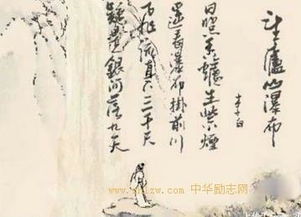 望廬山瀑布
李白
日照香爐生紫煙
遙看瀑布掛前川
飛流直下三千尺
疑是銀河落九天
中华励志网